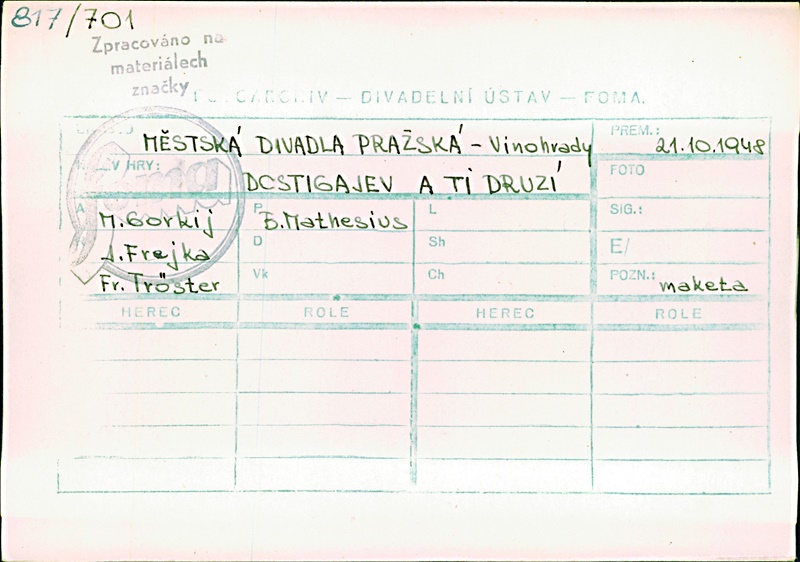 817/701
Zpracováno na
materiálech
značky
Foma
FOTOARCHIV — DIVADELNÍ ÚSTAV — FOMA.
MĚSTSKÁ DIVADLA PRAŽSKÁ - Vinohrady
PREM.: 21.10.1948
HRY: DOSTIGAJEV A TI DRUZÍ
FOTO
A M. Gorkij
P B. Mathesius
L
SIG.:
J. Frejka
D
Sh
E/
Fr. Tröster
Vk
Ch
POZN.: maketa
HEREC ROLE HEREC ROLE